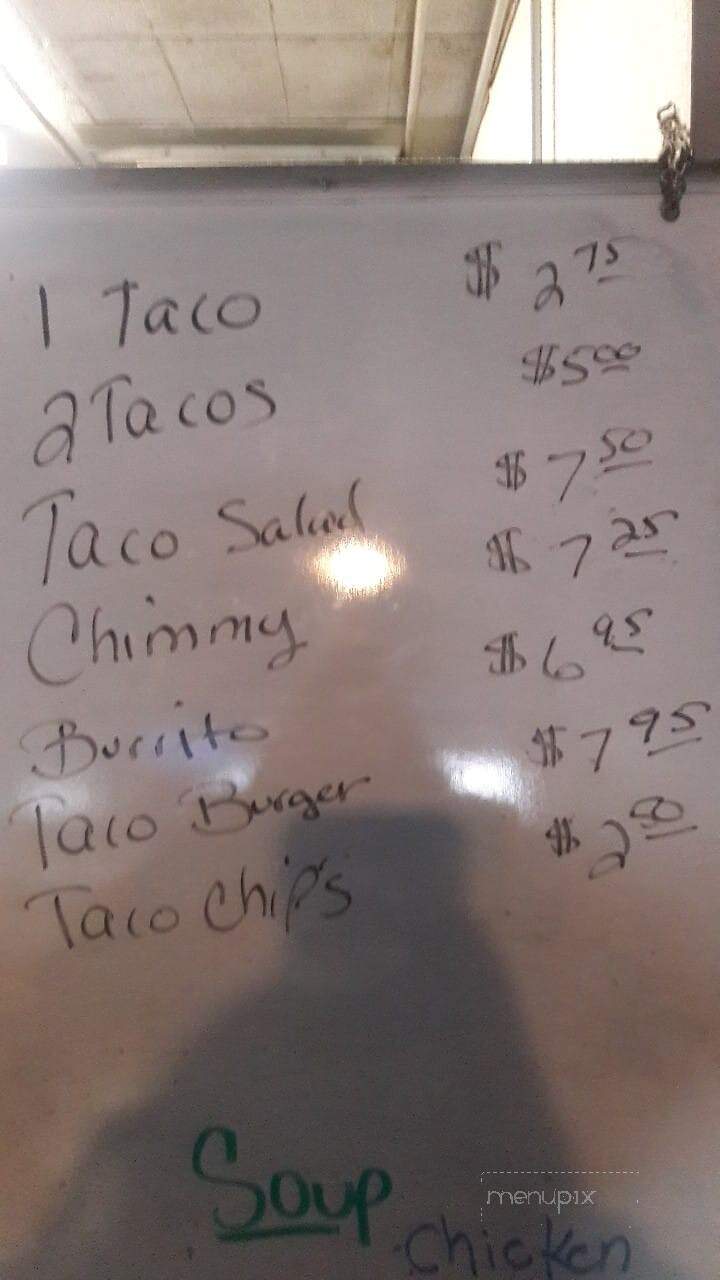 1 Taco $ 2 75
2 Tacos $5 00
Taco Salad $ 7 50
Chimmy $ 7 25
Burrito $ 6 95
Taco Burger $ 7 95
Taco Chips $ 2 50
Soup
Chicken
menupix